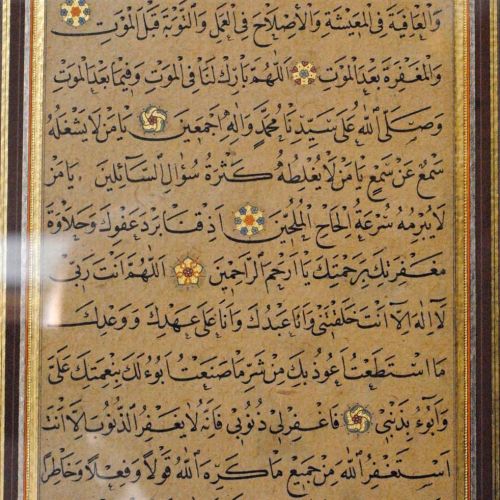 وَالْعَافِيَةَ فِي الْمَعِيشَةِ وَالْأِصْلَاحَ فِي الْعَمَلِ وَالتَّوْبَةَ قَبْلَ الْمَوْتِ
وَالْمَغْفِرَةَ بَعْدَ الْمَوْتِ اَللّٰهُمَّ بَارِكْ لَنَا فِي الْمَوْتِ وَفِيمَا بَعْدَ الْمَوْتِ
وَصَلَّى اللّٰهُ عَلَى سَيِّدِنَا مُحَمَّدٍ وَاٰلِهِ اَجْمَعِينَ يَا مَنْ لَا يَشْغَلُهُ
سَمْعٌ عَنْ سَمْعٍ يَا مَنْ لَا يُغْلِطُهُ كَثْرَةُ سُؤَالِ السَّائِلِينَ يَا مَنْ
لَا يُبْرِمُهُ سُرْعَةُ اِلْحَاحِ الْمُلِحِّينَ اَذِقْنَا بَرْدَ عَفْوِكَ وَحَلَاوَةَ
مَغْفِرَتِكَ بِرَحْمَتِكَ يَا اَرْحَمَ الرَّاحِمِينَ اَللّٰهُمَّ اَنْتَ رَبِّي
لَا اِلٰهَ اِلَّا اَنْتَ خَلَقْتَنِي وَاَنَا عَبْدُكَ وَاَنَا عَلَى عَهْدِكَ وَوَعْدِكَ
مَا اسْتَطَعْتُ اَعُوذُ بِكَ مِنْ شَرِّ مَا صَنَعْتُ اَبُوءُ لَكَ بِنِعْمَتِكَ عَلَيَّ
وَاَبُوءُ بِذَنْبِي فَاغْفِرْ لِي ذُنُوبِي فَاِنَّهُ لَا يَغْفِرُ الذُّنُوبَ اِلَّا اَنْتَ
اَسْتَغْفِرُ اللّٰهَ مِنْ جَمِيعِ مَا كَرِهَ اللّٰهُ قَوْلًا وَفِعْلًا وَخَاطِرًا